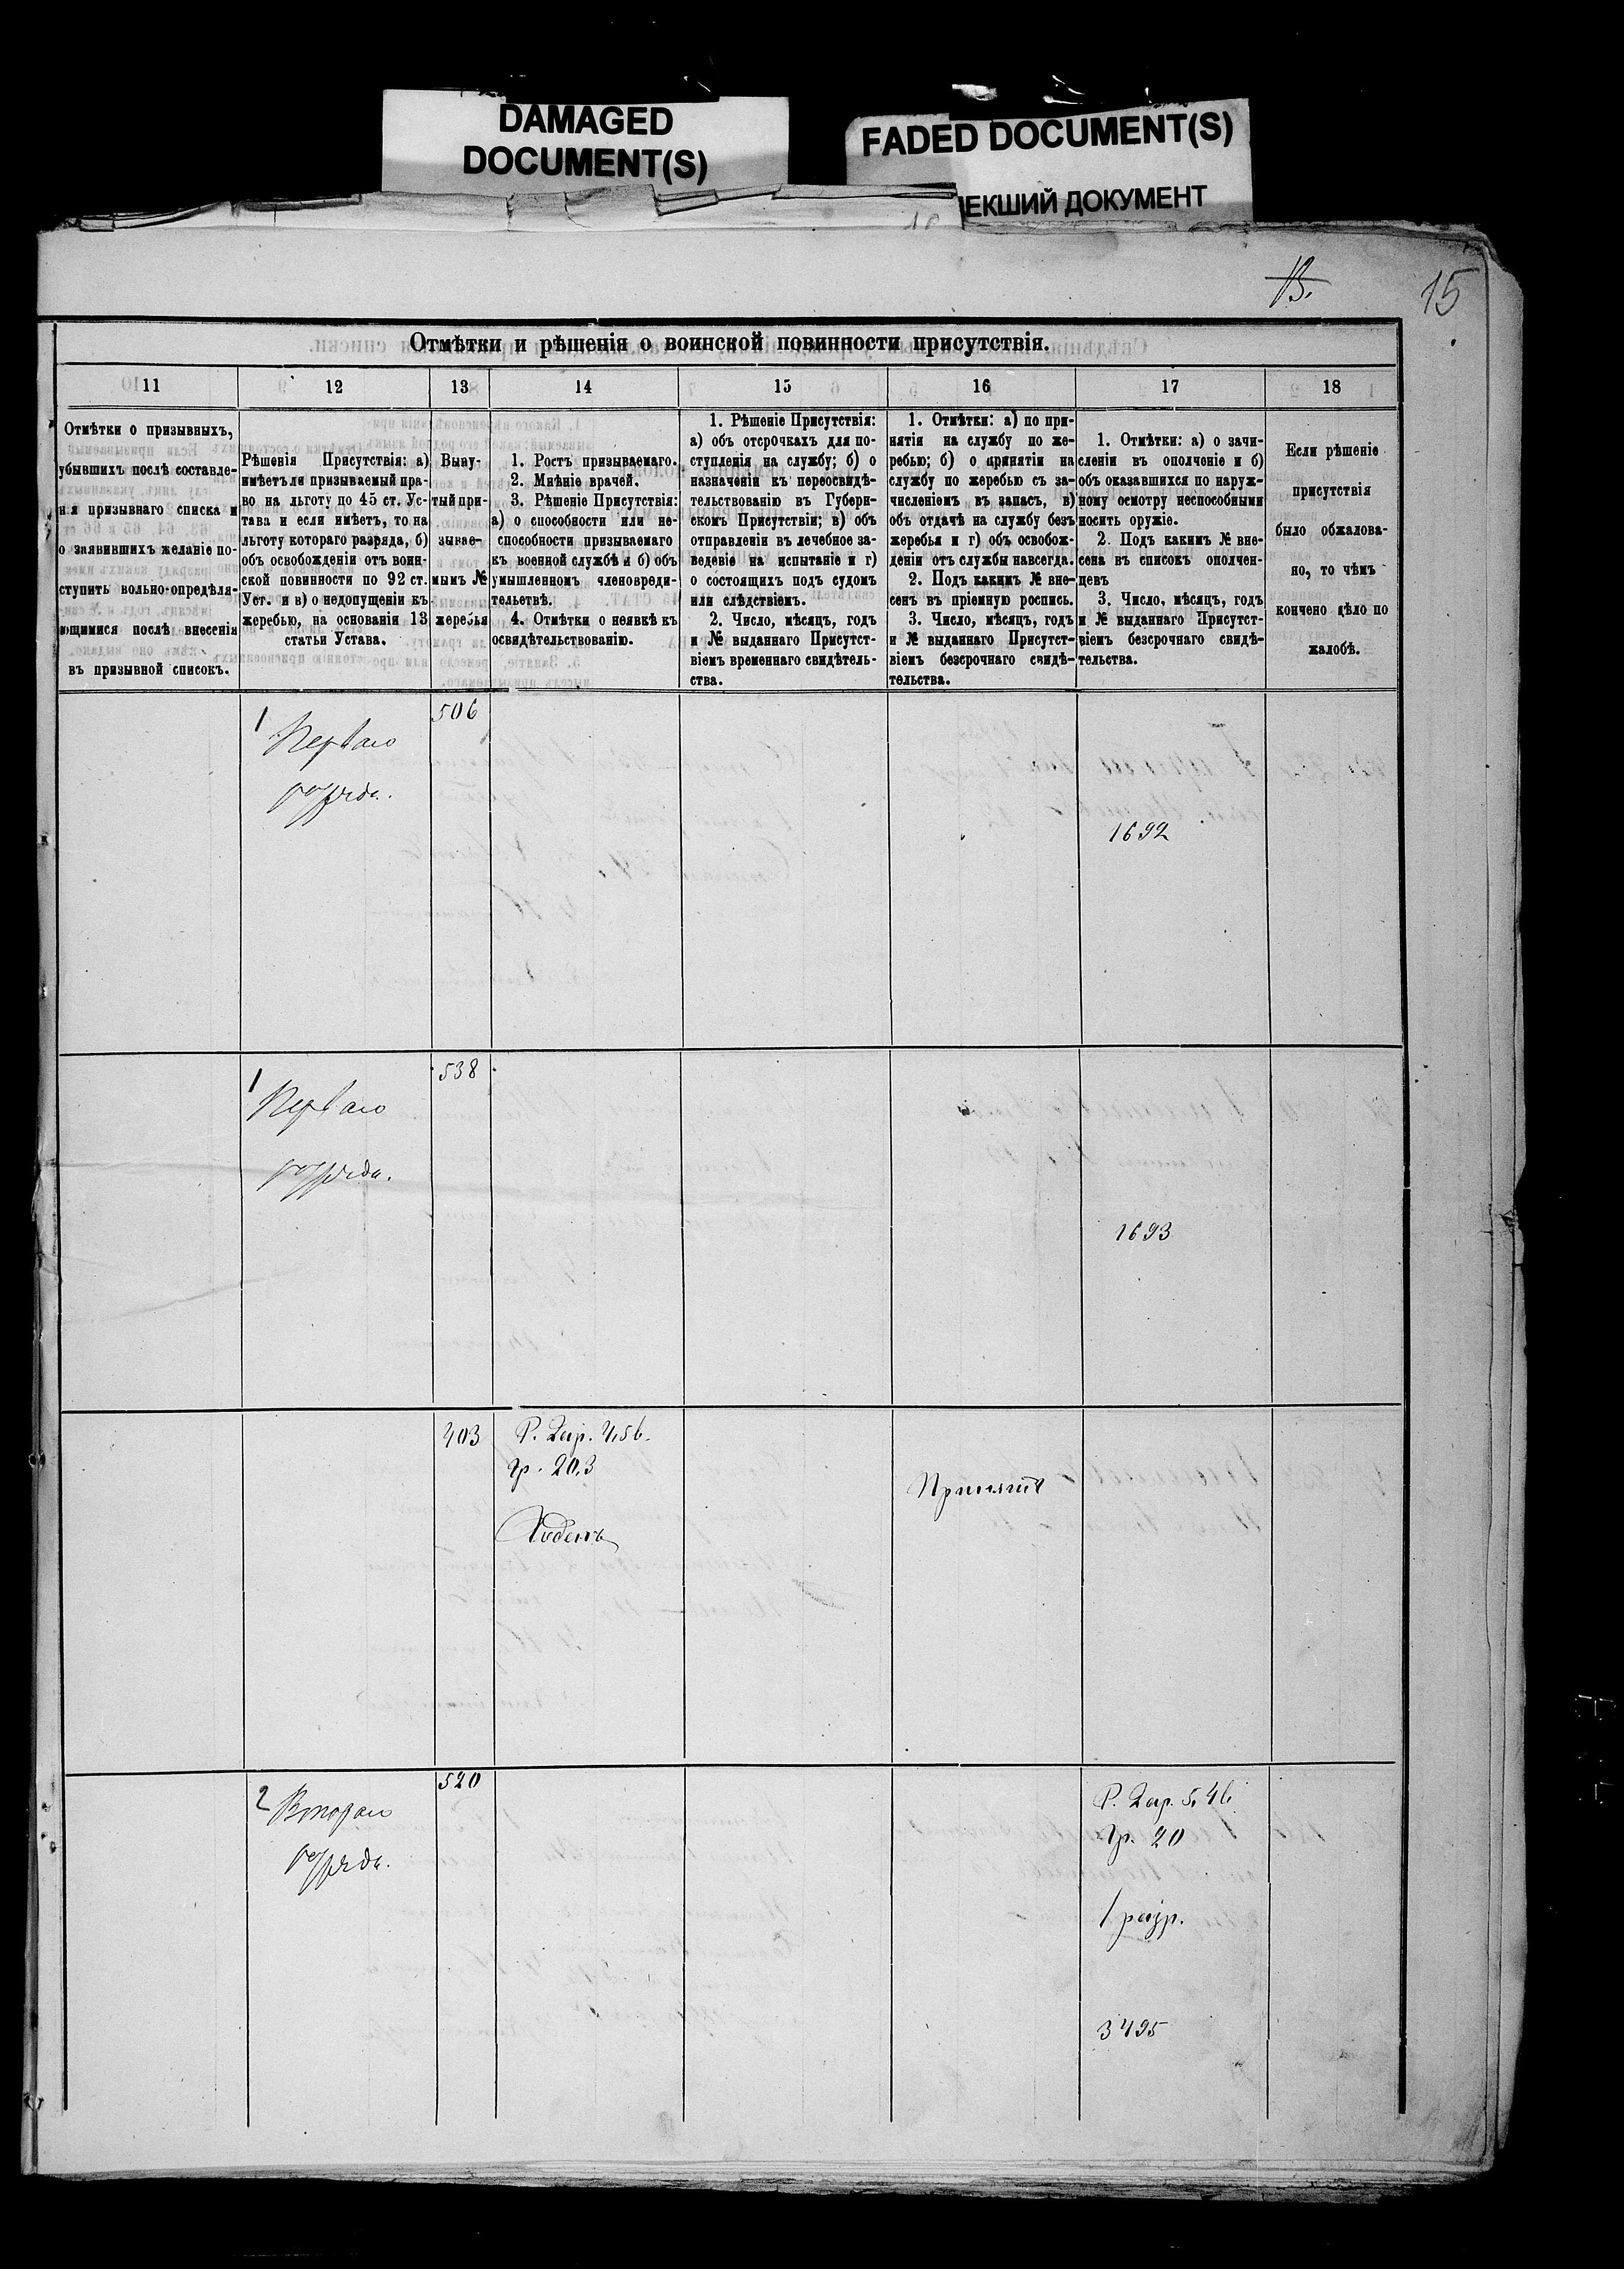 DAMAGED
DOCUMENT(S)
FADED DOCUMENT(S)
ЛЕКШИЙ ДОКУМЕНТ
13.
15
Отмѣтки и рѣшенія о воинской повинности присутствія.
11
12
13
14
15
16
17
18
Отмѣтки о призывныхъ,
убывшихъ послѣ составле-
нія призывнаго списка и
о заявившихъ желаніе по-
ступить вольно-опредѣля-
ющимися послѣ внесенія
въ призывной списокъ.
Рѣшенія Присутствія: а)
имѣетъ ли призываемый пра-
во на льготу по 45 ст. Ус-
тава и если имѣетъ, то на
льготу котораго разряда, б)
объ освобожденіи отъ воин-
ской повинности по 92 ст.
Уст. и в) о недопущеніи къ
жеребью, на основаніи 13
статьи Устава.
Выну-
тый при-
зывае-
мымъ №
жеребья
1. Ростъ призываемаго.
2. Мнѣніе врачей.
3. Рѣшеніе Присутствія:
а) о способности или не-
способности призываемаго
къ военной службѣ и б) объ
умышленномъ членовреди-
тельствѣ.
4. Отмѣтки о неявкѣ къ
освидѣтельствованію.
1. Рѣшеніе Присутствія:
а) объ отсрочкахъ для по-
ступленія на службу; б) о
назначеніи къ переосвидѣ-
тельствованію въ Губерн-
скомъ Присутствіи; в) объ
отправленіи въ лечебное за-
веденіе на испытаніе и г)
о состоящихъ подъ судомъ
или слѣдствіемъ.
2. Число, мѣсяцъ, годъ
и № выданнаго Присутст-
віемъ временнаго свидѣтель-
ства.
1. Отмѣтки: а) по при-
нятія на службу по же-
ребью; б) о принятіи на
службу по жеребью съ за-
численіемъ въ запасъ, в)
объ отдачѣ на службу безъ
жеребья и г) объ освобож-
деніи отъ службы навсегда.
2. Подъ какимъ № вне-
сенъ въ пріемную роспись.
3. Число, мѣсяцъ, годъ
и № выданнаго Присутст-
віемъ безсрочнаго свидѣ-
тельства.
1. Отмѣтки: а) о зачи-
сленіи въ ополченіе и б)
объ оказавшихся по наруж-
ному осмотру неспособными
носить оружіе.
2. Подъ какимъ № вне-
сена въ списокъ ополчен-
цевъ
3. Число, мѣсяцъ, годъ
и № выданнаго Присутст-
віемъ безсрочнаго свидѣ-
тельства.
Если рѣшеніе
присутствія
было обжалова-
но, то чѣмъ
кончено дѣло по
жалобѣ.
1
Перваго
разряда.
506
1692
1
Перваго
разряда.
538
1693
403
Р. 2 ар. 4,5 в.
гр. 20,3
Годенъ
Принятъ
2
Втораго
разряда.
520
Р. 2 ар. 5,4 в.
гр. 20
1 разр.
3495